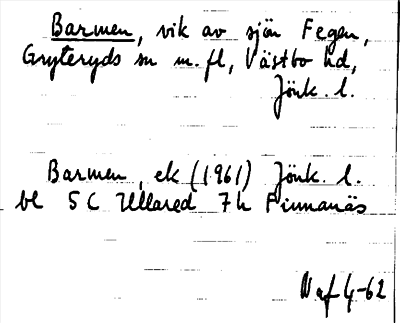 Barmen, vik av sjön Fegen,
Gryteryds sn m. fl, Västbo hd,
Jönk. l.
Barmen, ek (1961) Jönk. l.
bl 5 C Ullared 7 h Finnanäs
N af 4-62